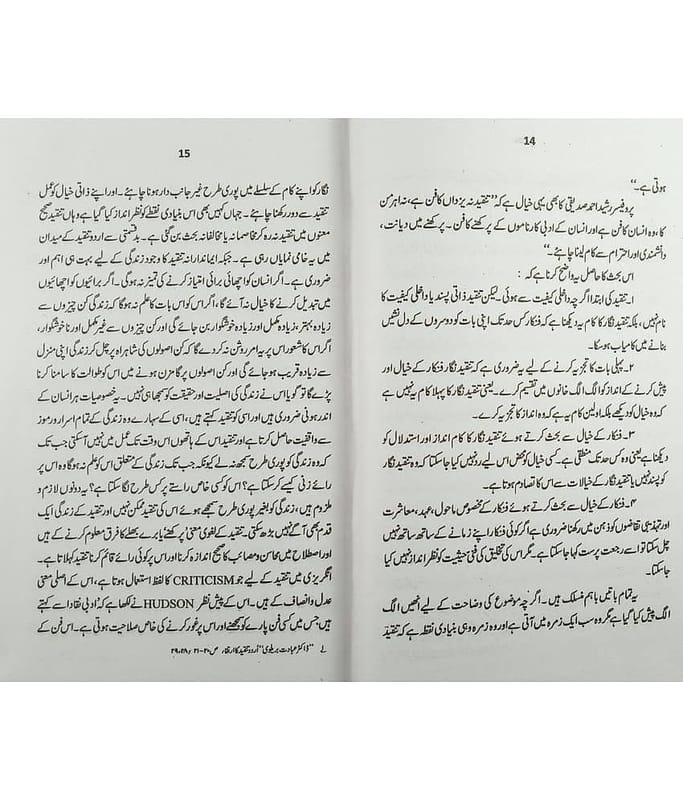 14
ہوتی ہے۔“
پروفیسر رشید احمد صدیقی کا بھی یہی خیال ہے کہ ”تنقید نہ یزداں کا فن ہے، نہ اہرمن
کا، وہ انسان کا فن ہے اور انسان کے ادبی کارناموں کے پرکھنے کا فن۔ پرکھنے میں دیانت،
دانشمندی اور احترام سے کام لینا چاہئے۔“
اس بحث کا حاصل یہ واضح کرنا ہے کہ :
۱۔ تنقید کی ابتدا اگرچہ داخلی کیفیت سے ہوئی۔ لیکن تنقید ذاتی پسند یا داخلی کیفیت کا
نام نہیں، بلکہ تنقید نگار کا کام یہ دیکھنا ہے کہ فنکار کس حد تک اپنی بات کو دوسروں کے دل نشیں
بنانے میں کامیاب ہو سکا۔
۲۔ پہلی بات کا تجزیہ کرنے کے لیے یہ ضروری ہے کہ تنقید نگار فنکار کے خیال اور
پیش کرنے کے انداز کو الگ الگ خانوں میں تقسیم کرے۔ یعنی تنقید نگار کا پہلا کام یہ نہیں ہے
کہ وہ خیال کو دیکھے بلکہ اولین کام یہ ہے کہ وہ انداز کا تجزیہ کرے۔
۳۔ فنکار کے خیال سے بحث کرتے ہوئے تنقید نگار کا کام انداز اور استدلال کو
دیکھنا ہے یعنی وہ کس حد تک منطقی ہے۔ کسی خیال کو محض اس لیے رد نہیں کیا جا سکتا کہ وہ تنقید نگار
کو پسند نہیں یا تنقید نگار کے خیالات سے اس کا تصادم ہوتا ہے۔
۴۔ فنکار کے خیال سے بحث کرتے ہوئے فنکار کے مخصوص ماحول، عہد، معاشرت
اور تہذیبی تقاضوں کو ذہن میں رکھنا ضروری ہے اگر کوئی فنکار اپنے زمانے کے ساتھ ساتھ نہیں
چل سکتا تو اسے رجعت پرست کہا جا سکتا ہے۔ مگر اس کی تخلیق کی فنی حیثیت کو نظر انداز نہیں کیا
جا سکتا۔
یہ تمام باتیں باہم منسلک ہیں۔ اگرچہ موضوع کی وضاحت کے لیے انھیں الگ
الگ پیش کیا گیا ہے مگر وہ سب ایک زمرہ میں آتی ہے اور وہ زمرہ وہی بنیادی نقطہ ہے کہ تنقید
15
نگار کو اپنے کام کے سلسلے میں پوری طرح غیر جانب دار ہونا چاہئے۔ اور اپنے ذاتی خیال کو عمل
تنقید سے دور رکھنا چاہئے۔ جہاں کہیں بھی اس بنیادی نقطے کو نظر انداز کیا گیا ہے وہاں تنقید صحیح
معنوں میں تنقید نہ رہ کر مخاصمانہ یا مخالفانہ بحث بن گئی ہے۔ بدقسمتی سے اردو تنقید کے میدان
میں یہ خامی نمایاں رہی ہے۔ جبکہ ایماندارانہ تنقید کا وجود زندگی کے لیے بہت ہی اہم اور
ضروری ہے۔ اگر انسان کو اچھائی برائی امتیاز کرنے کی تمیز نہ ہوگی۔ اگر برائیوں کو اچھائیوں
میں تبدیل کرنے کا خیال نہ آئے گا، اگر اس کو اس بات کا علم نہ ہوگا کہ زندگی کن چیزوں سے
زیادہ بہتر، زیادہ مکمل اور زیادہ خوشگوار بن جائے گی اور کن چیزوں سے غیر مکمل اور ناخوشگوار،
اگر اس کا شعور اس پر یہ امر روشن نہ کر دے گا کہ کن اصولوں کی شاہراہ پر چل کر زندگی اپنی منزل
سے زیادہ قریب ہو جائے گی اور کن اصولوں پر گامزن ہونے میں اس کو طوالت کا سامنا کرنا
پڑے گا تو گویا اس نے زندگی کی اصلیت اور حقیقت کو سمجھا ہی نہیں۔ یہ خصوصیات ہر انسان کے
اندر ہونی ضروری ہیں اور اسی کو تنقید کہتے ہیں، اسی کے سہارے وہ زندگی کے تمام اسرار و رموز
سے واقفیت حاصل کرتا ہے اور تنقید اس کے ہاتھوں اس وقت تک عمل میں نہیں آ سکتی جب تک
کہ وہ زندگی کو پوری طرح سمجھ نہ لے کیونکہ جب تک زندگی کے متعلق اس کو علم نہ ہوگا وہ اس پر
رائے زنی کیسے کر سکتا ہے؟ اس کو کسی خاص راستے پر کس طرح لگا سکتا ہے؟ یہ دونوں لازم و
ملزوم ہیں، زندگی کو بغیر پوری طرح سمجھے ہوئے اس کی تنقید ممکن نہیں اور تنقید کے زندگی ایک
قدم بھی آگے نہیں بڑھ سکتی۔ تنقید کے لغوی معنی پرکھنے یا برے بھلے کا فرق معلوم کرنے کے ہیں
اور اصطلاح میں محاسن و مصائب کا صحیح اندازہ کرنا اور اس پر کوئی رائے قائم کرنا تنقید کہلاتا ہے۔
انگریزی میں تنقید کے لیے جو CRITICISM کا لفظ استعمال ہوتا ہے، اس کے اصلی معنی
عدل و انصاف کے ہیں۔ اس کے پیش نظر HUDSON نے لکھا ہے کہ ’ادبی نقاد اسے کہتے
ہیں جس میں کسی فن پارے کو سمجھنے اور اس پر غور کرنے کی خاص صلاحیت ہوتی ہے۔ اس فن کے
لے ”ڈاکٹر عبادت بریلوی“ اردو تنقید کا ارتقاء ص